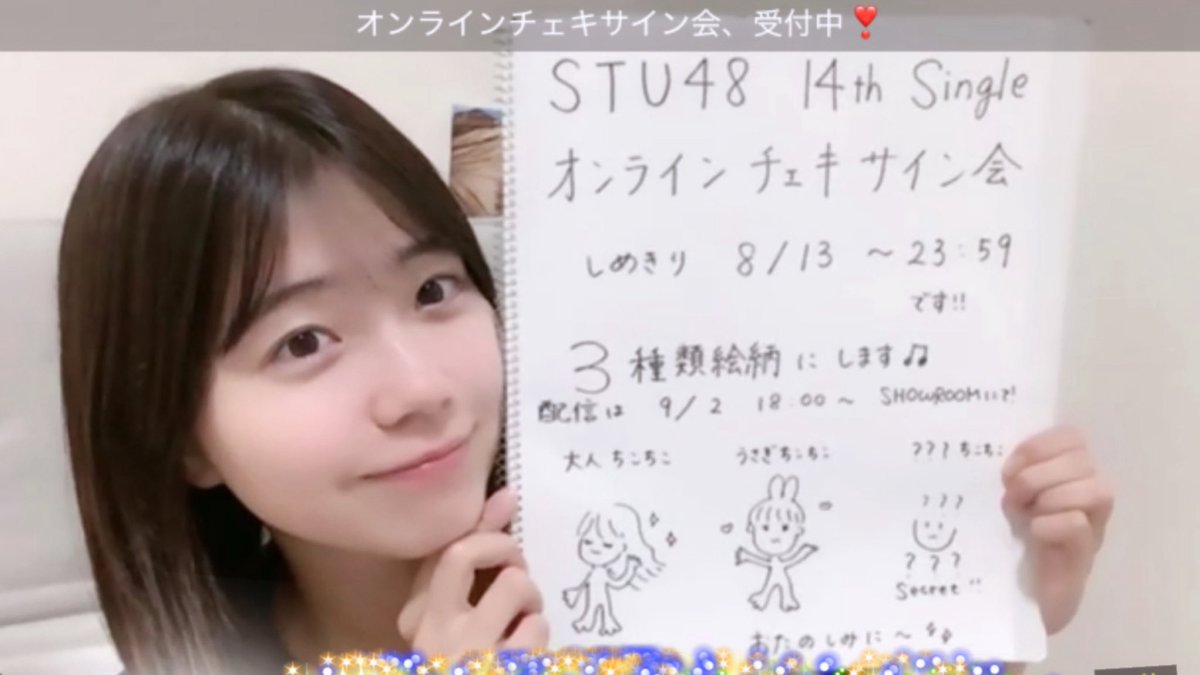 オンラインチェキサイン会、受付中❣️
STU48 14th Single
オンラインチェキサイン会
しめきり 8/13 ~23:59
です!!
3種類絵柄にします♫
配信は 9/2 18:00~ SHOWROOMにて!
大人ちこちこ うさぎちこちこ ???ちこちこ
???
???
Secret!!
おたのしみに~